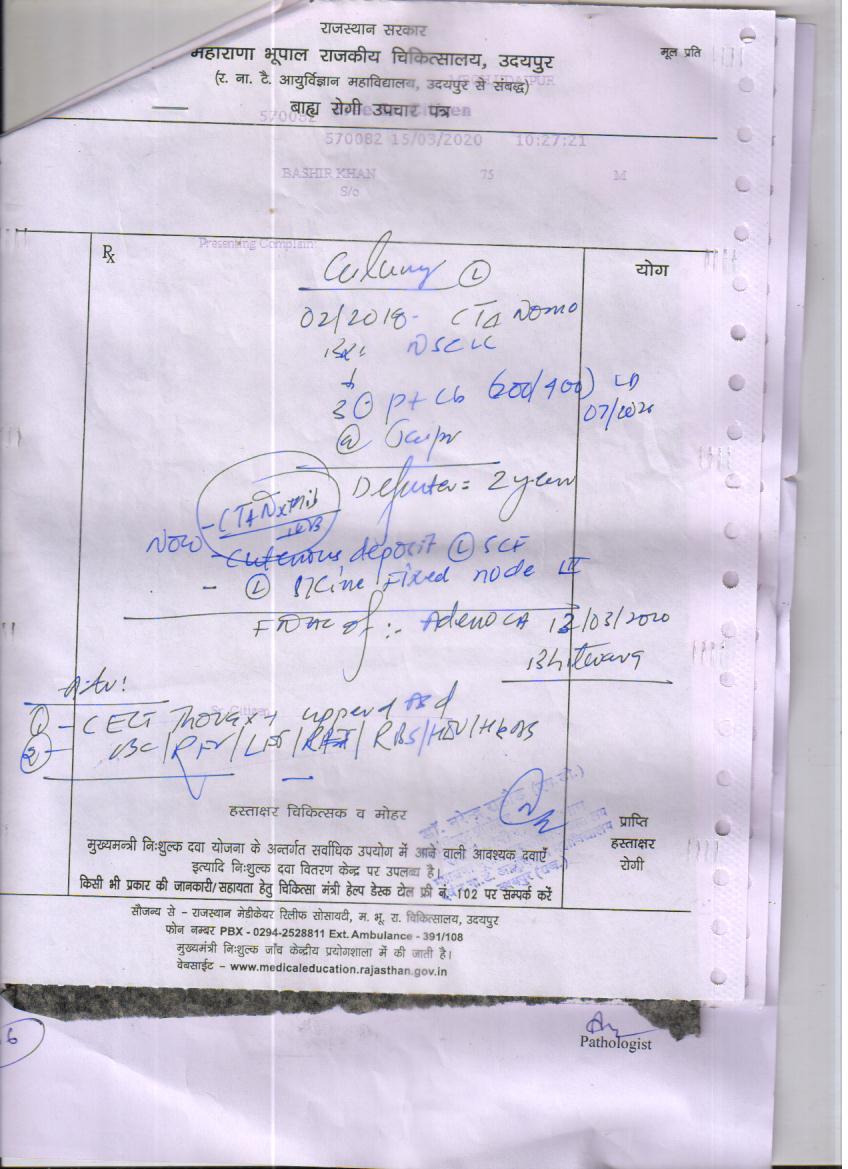 राजस्थान सरकार
महाराणा भूपाल राजकीय चिकित्सालय, उदयपुर
मूल प्रति
(र. ना. टै. आयुर्विज्ञान महाविद्यालय, उदयपुर से संबद्ध)
बाह्य रोगी उपचार पत्र
570082 15/03/2020 10:27:21
BASHIR KHAN 75 M
S/o
Presenting Complain:
Rx
योग
Ca Lung (L)
02/2018- CT4 N0M0
NSCLC
3 P+Cb (200/400) LD
07/202
@
Defaulter = 2 year
CT4 Nx M1b
NOW - Cutenous deposit (L) SCF
- (L) fixed node III
FNAC of :- Adeno CA 12/03/2020
Adv:
1 - CECT Thorax + upper Abd
2 - CBC/RFT/LFT/ RBS/HIV/HBsAg
Sr. Citizen
हस्ताक्षर चिकित्सक व मोहर
प्राप्ति
हस्ताक्षर
रोगी
मुख्यमन्त्री निःशुल्क दवा योजना के अन्तर्गत सर्वाधिक उपयोग में आने वाली आवश्यक दवाएँ
इत्यादि निःशुल्क दवा वितरण केन्द्र पर उपलब्ध है।
किसी भी प्रकार की जानकारी/सहायता हेतु चिकित्सा मंत्री हेल्प डेस्क टोल फ्री नं. 102 पर सम्पर्क करें
सौजन्य से - राजस्थान मेडीकेयर रिलीफ सोसायटी, म. भू. रा. चिकित्सालय, उदयपुर
फोन नम्बर PBX - 0294-2528811 Ext. Ambulance - 391/108
मुख्यमंत्री निःशुल्क जाँच केन्द्रीय प्रयोगशाला में की जाती है।
वेबसाईट - www.medicaleducation.rajasthan.gov.in
Pathologist